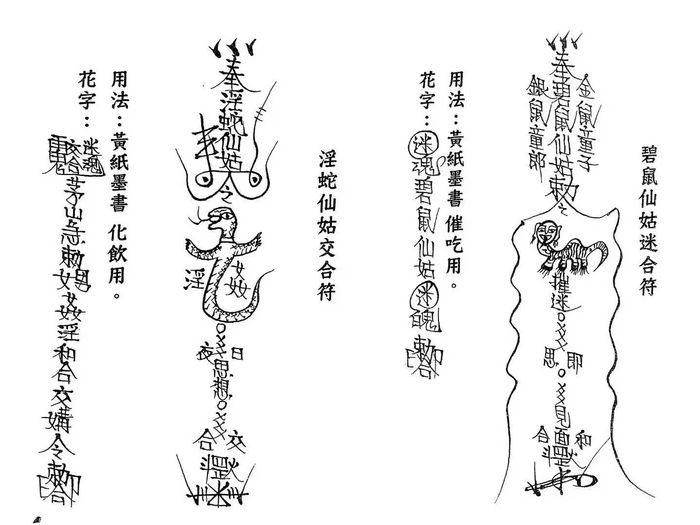 碧鼠仙姑迷合符
金鼠童子
奉碧鼠仙姑勅
銀鼠童郎
摧迷
即
思
見面
和
合
用法：黃紙墨書 催吃用。
花字：迷魂碧鼠仙姑迷
淫蛇仙姑交合符
奉淫蛇仙姑
姦
淫
日
夜
思想
交
合
用法：黃紙墨書 化飲用。
花字：迷魂交合茅山急勅男女姦淫和合交媾令